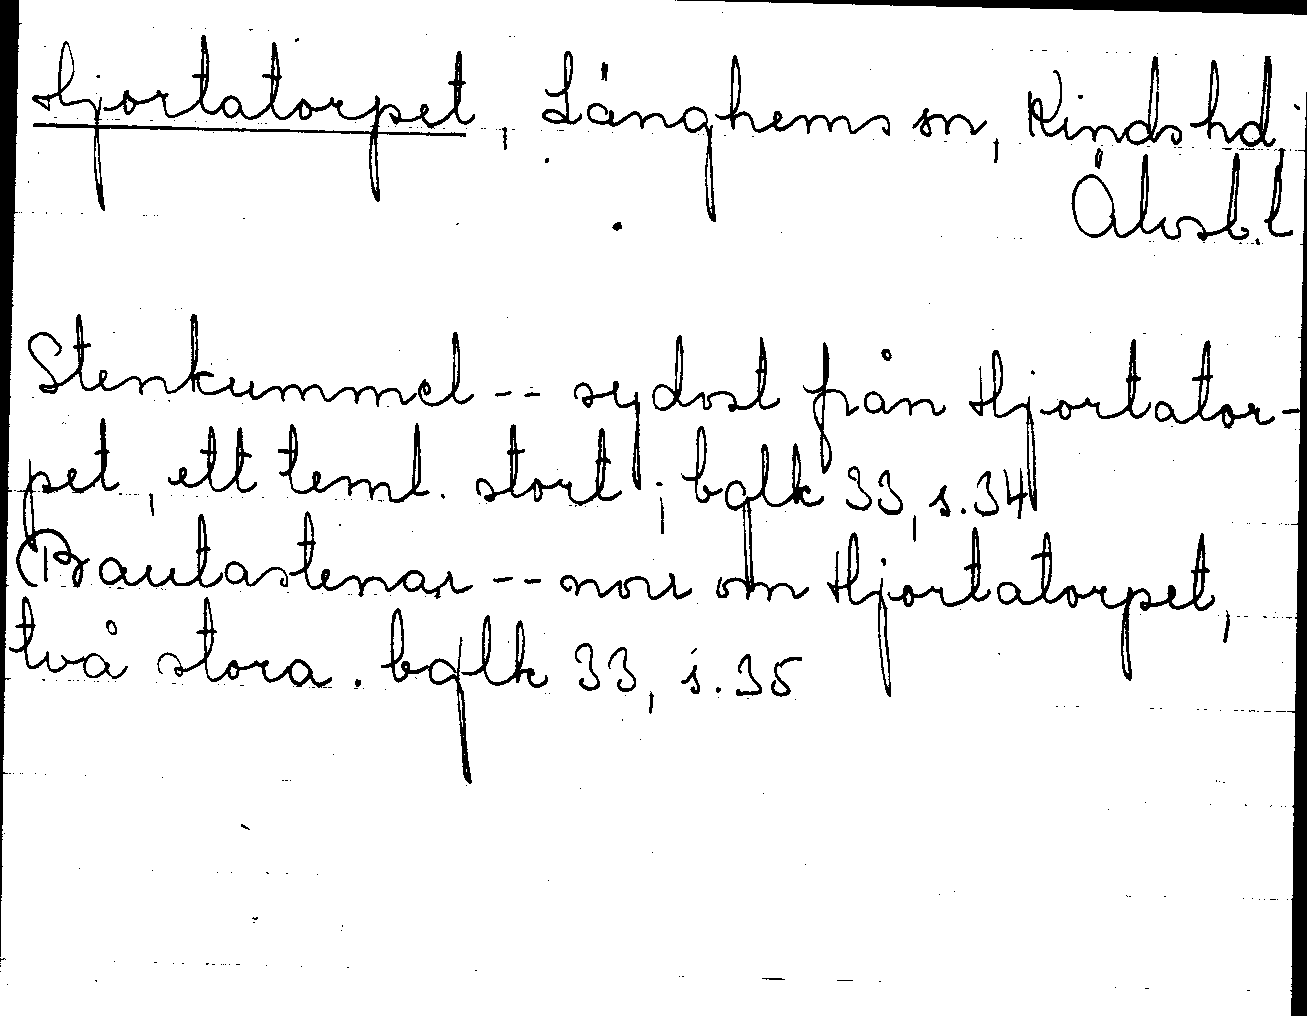 Hjortatorpet, Länghems sn, Kinds hd,
Älvsb.l
Stenkummel -- sydost från Hjortator-
pet, ett teml. stort; bglk 33, s.34
Bautastenar -- norr om Hjortatorpet,
två stora. bglk 33, s.35